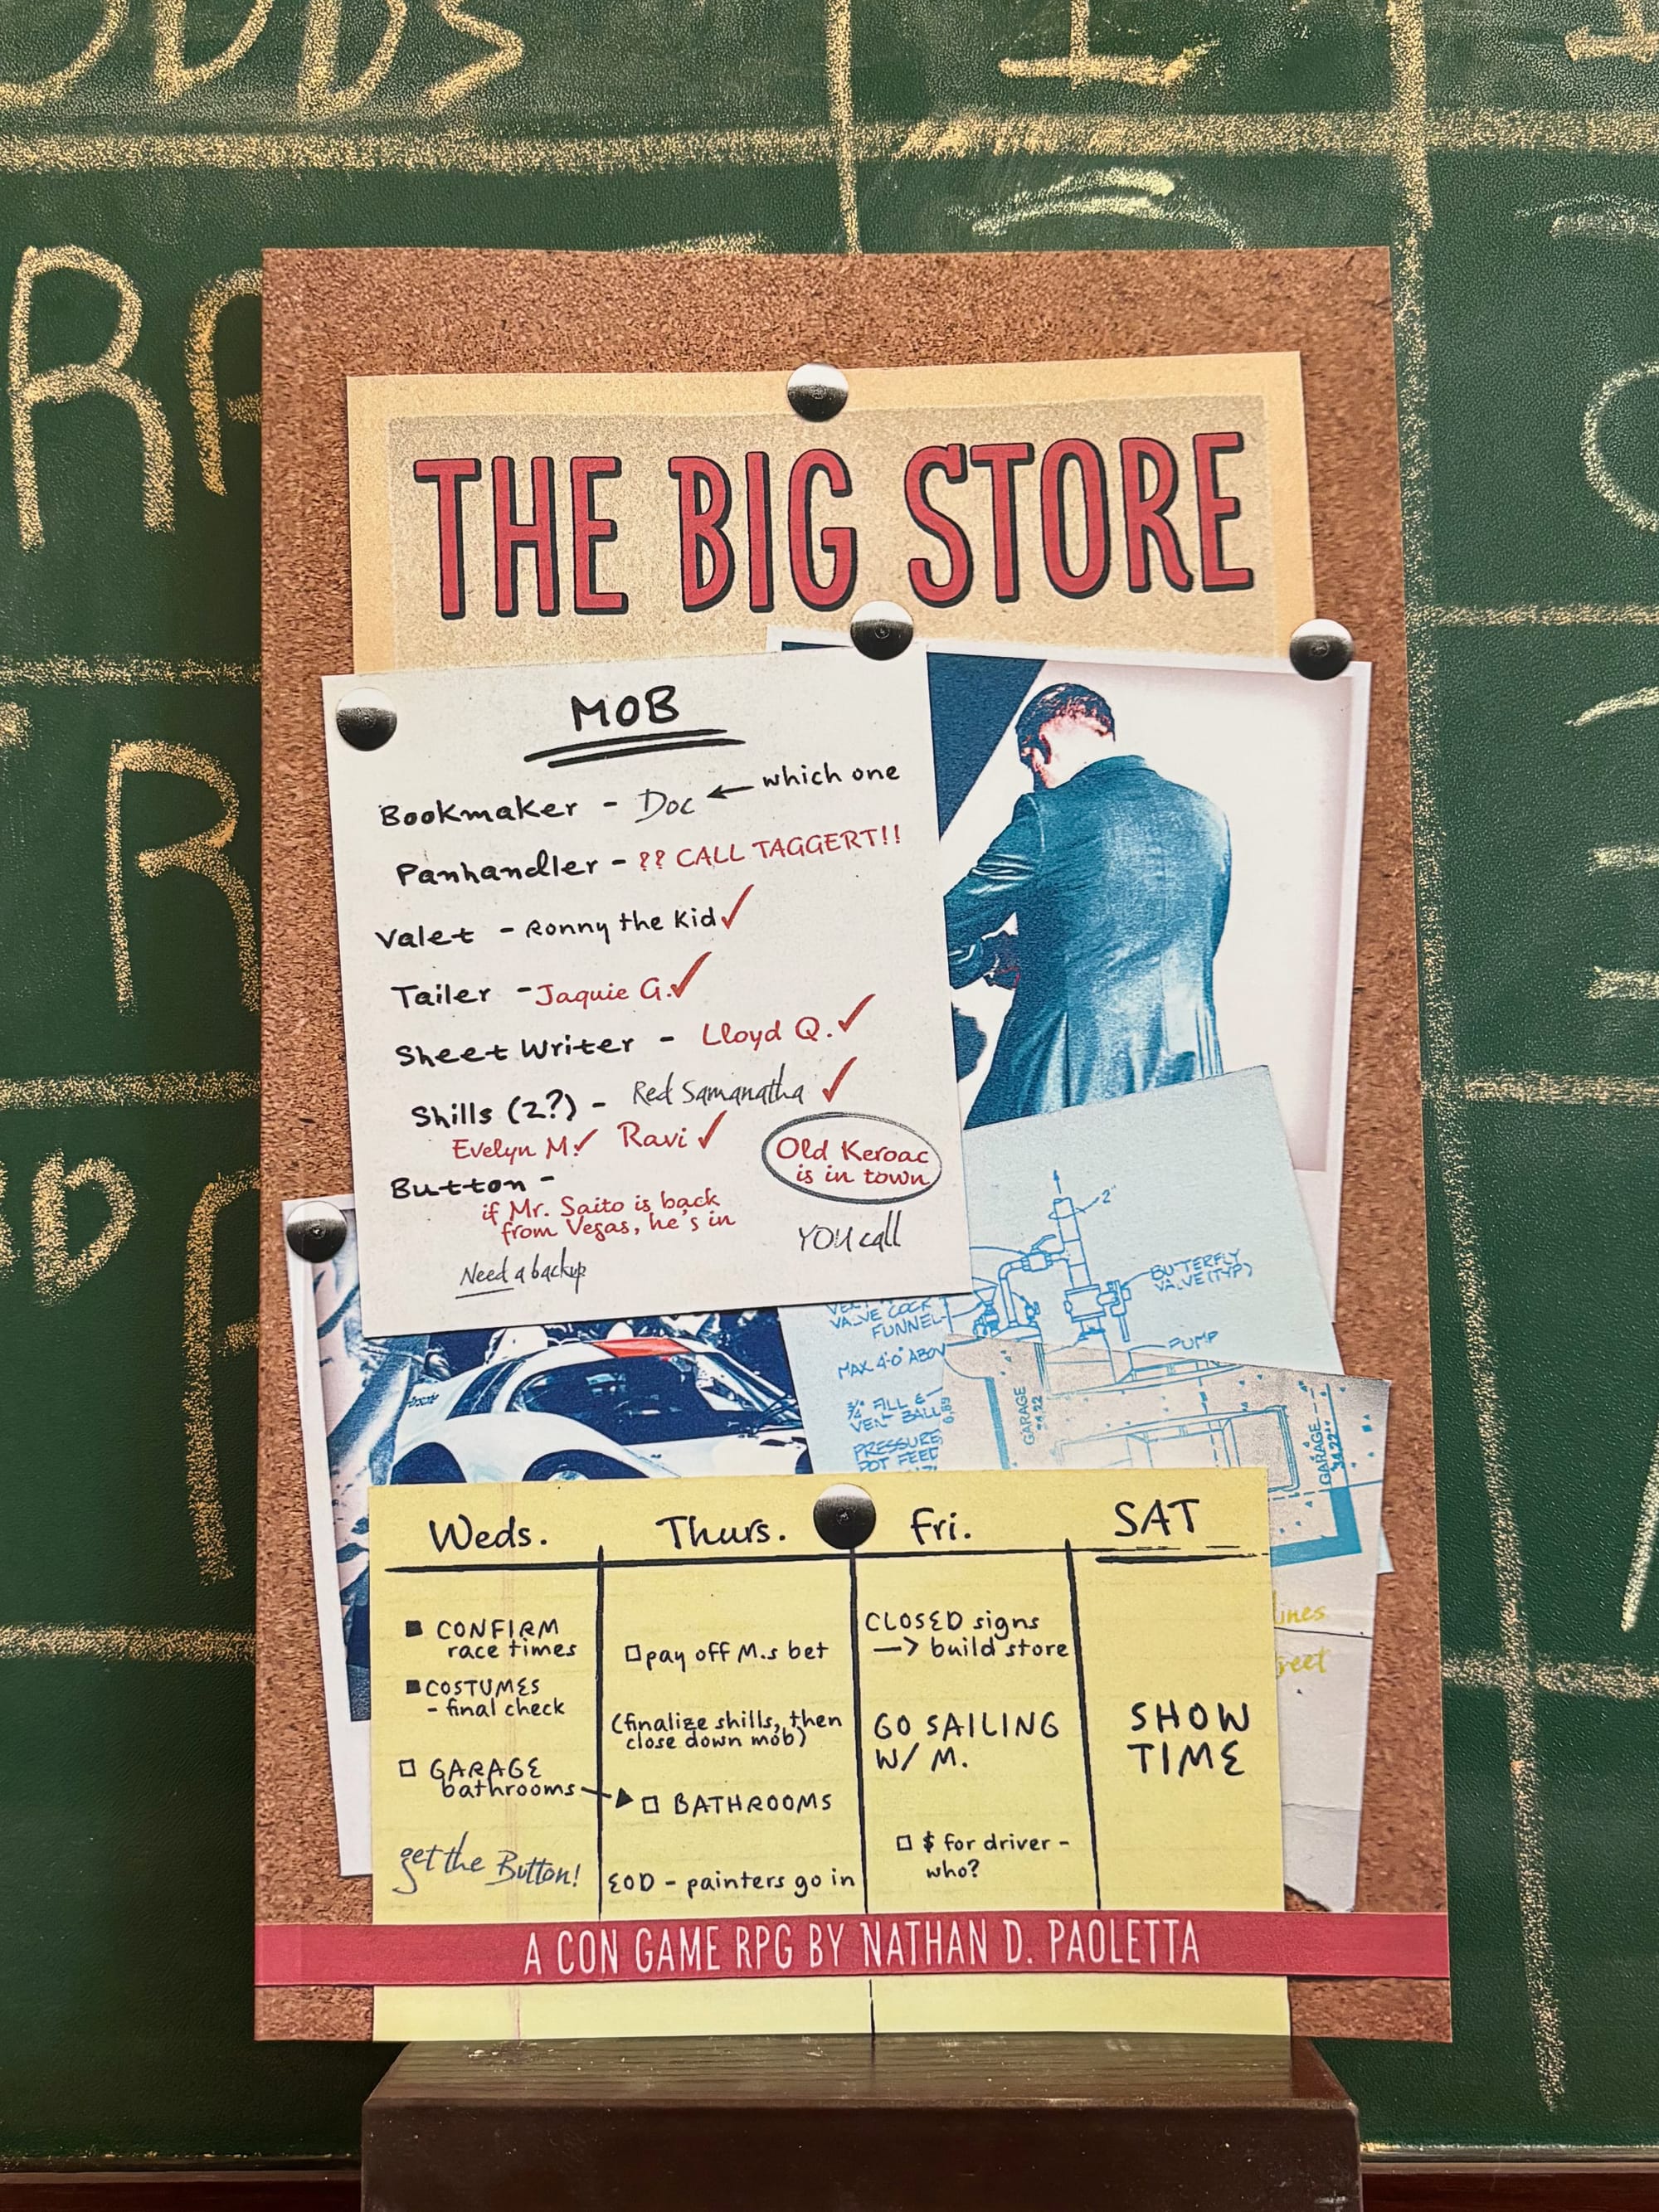 THE BIG STORE
MOB
Bookmaker - Doc ← which one
Panhandler - ?? CALL TAGGERT!!
Valet - Ronny the Kid ✓
Tailer - Jaquie G. ✓
Sheet Writer - Lloyd Q. ✓
Shills (2?) - Red Samanatha ✓
Evelyn M. ✓ Ravi ✓
Old Keroac
is in town
Button -
if Mr. Saito is back
from Vegas, he's in
YOU call
Need a backup
2"
BUTTERFLY
VALVE (TYP)
VALVE COCK
FUNNEL
PUMP
MAX 4'-0" ABOV
3/4" FILL &
VENT BALL
PRESSURE
POT FEED
GARAGE
GARAGE
34.22
Weds. Thurs. Fri. SAT
■ CONFIRM
race times
■ COSTUMES
- final check
□ GARAGE
bathrooms
get the Button!
□ pay off M.s bet
(finalize shills, then
close down mob)
□ BATHROOMS
EOD - painters go in
CLOSED signs
—> build store
GO SAILING
W/ M.
□ $ for driver -
who?
SHOW
TIME
ines
reet
A CON GAME RPG BY NATHAN D. PAOLETTA